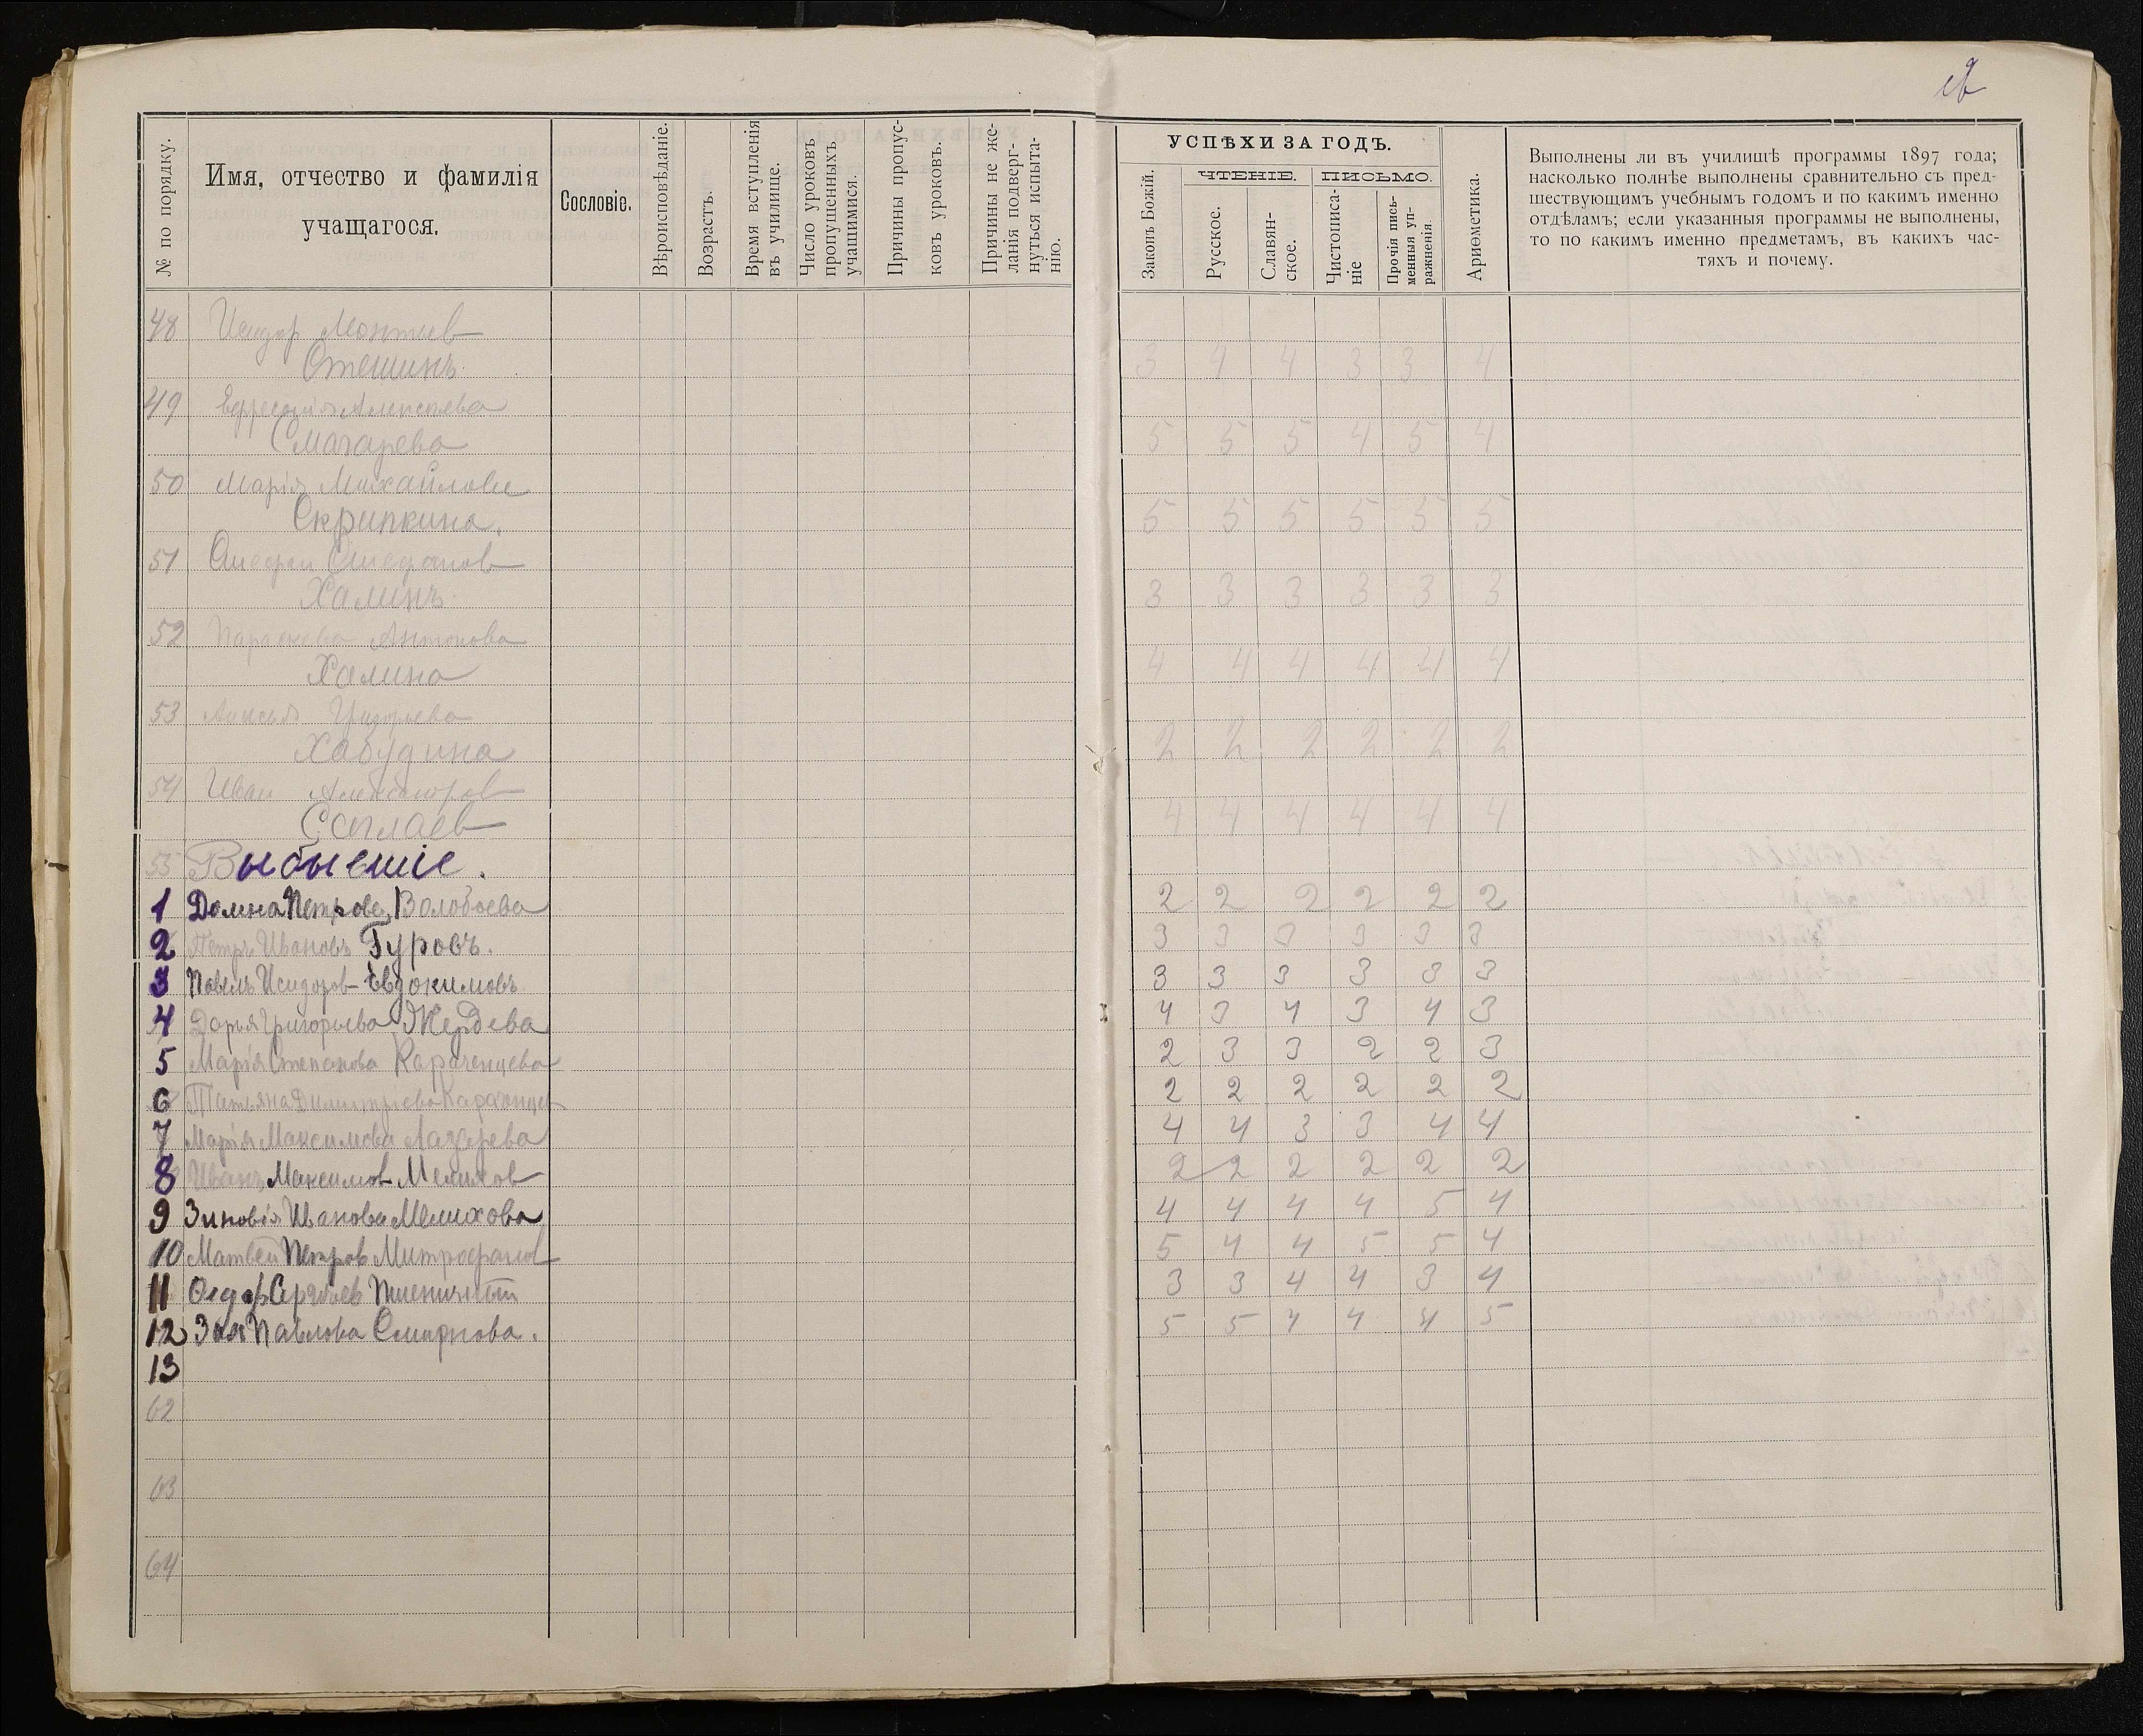 № по порядку.
Имя, отчество и фамилія
учащагося.
Сословіе.
Вѣроисповѣданіе.
Возрастъ.
Время вступленія
въ училище.
Число уроковъ
пропущенныхъ
учащимися.
Причины пропус-
ковъ уроковъ.
Причины не же-
ланія подверг-
нуться испыта-
нію.
УСПѢХИ ЗА ГОДЪ.
Законъ Божій.
ЧТЕНІЕ.
Русское.
Славян-
ское.
ПИСЬМО.
Чистописа-
ніе
Прочія пись-
менныя уп-
ражненія.
Ариѳметика.
Выполнены ли въ училищѣ программы 1897 года;
насколько полнѣе выполнены сравнительно съ пред-
шествующимъ учебнымъ годомъ и по какимъ именно
отдѣламъ; если указанныя программы не выполнены,
то по какимъ именно предметамъ, въ какихъ час-
тяхъ и почему.
48
Стешинъ 3 4 4 3 3 4
49 Алексѣева
Смагарева 5 5 5 4 5 4
50 Марія Михайлова
Скрипкина. 5 5 5 5 5 5
51
Халинъ 3 3 3 3 3 3
52 Параскева Антонова
Халина 4 4 4 4 4 4
53 Григорьева
Хабудина 2 2 2 2 2 2
54 Иван
4 4 4 4 4 4
55 Выбывшіе.
1 Домна Петрова Волобоева 2 2 2 2 2 2
2 Петръ Ивановъ Гуровъ. 3 3 3 3 3 3
3 Павелъ Исидоров Евдокимовъ 3 3 3 3 3 3
4 Дарья Григорьева Жердева 4 3 4 3 4 3
5 Марія Степанова Караченцева 2 3 3 2 2 3
6 Татьяна Димитриева 2 2 2 2 2 2
7 Марія Максимова Лазарева 4 4 3 3 4 4
8 Иванъ Максимов Мелихов 2 2 2 2 2 2
9 Зиновія Иванова Мелихова 4 4 4 4 5 4
10 Матвей Петров Митрофанов 5 4 4 5 5 4
11 Ѳедор Сергѣев 3 3 4 4 3 4
12 Зоя Павлова Смирнова. 5 5 4 4 4 5
13
62
63
64